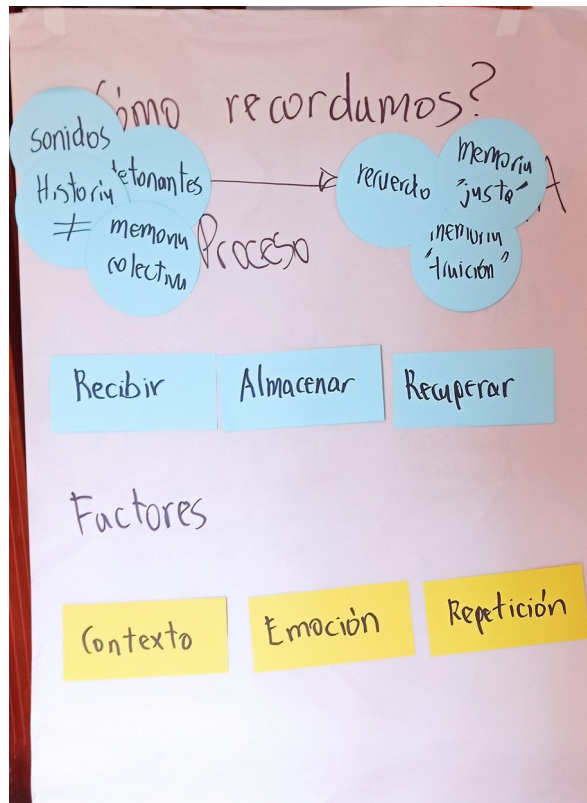 ¿Cómo recordamos?
sonidos
detonantes
Historia
≠
memoria
colectiva
recuerdo
memoria
"justa"
memoria
"traición"
A
Proceso
Recibir
Almacenar
Recuperar
Factores
Contexto
Emoción
Repetición